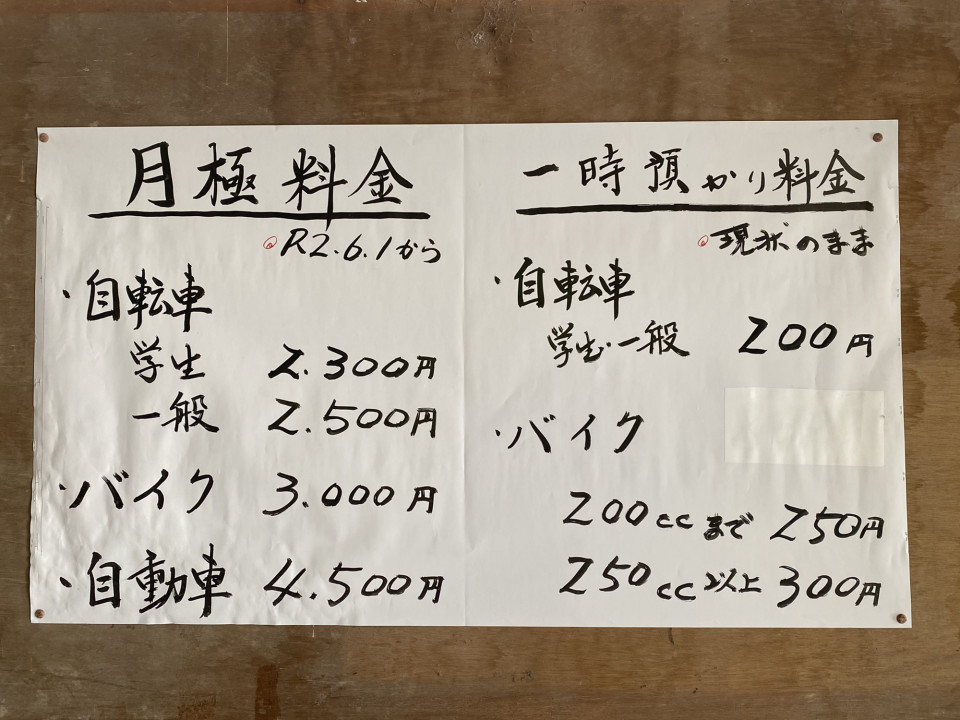 月極料金
R2.6.1から
・自転車
学生 2.300円
一般 2.500円
・バイク 3.000円
・自動車 4.500円
一時預かり料金
現状のまま
・自転車
学生・一般 200円
・バイク
200ccまで 250円
250cc以上 300円